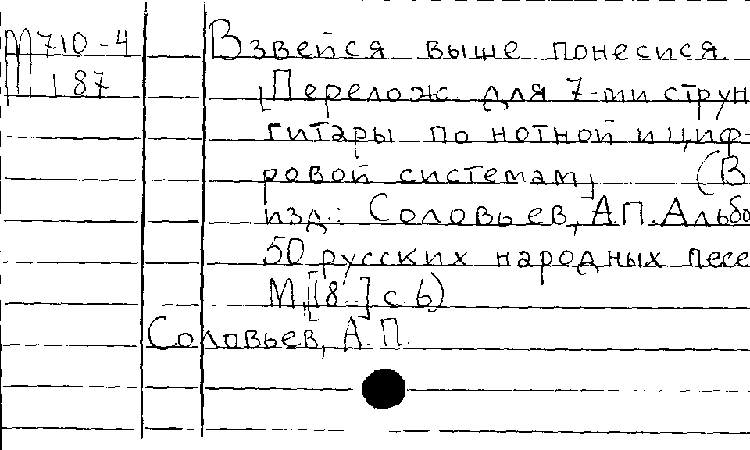 М 710-4 Взвейся выше понесися.
187 [Перелож. для 7-ми струн
гитары по нотной и циф-
ровой системам] (В
изд.: Соловьев, А.П. Альбо
50 русских народных песе
М, [18 ] с 6)
Соловьев, А.П.